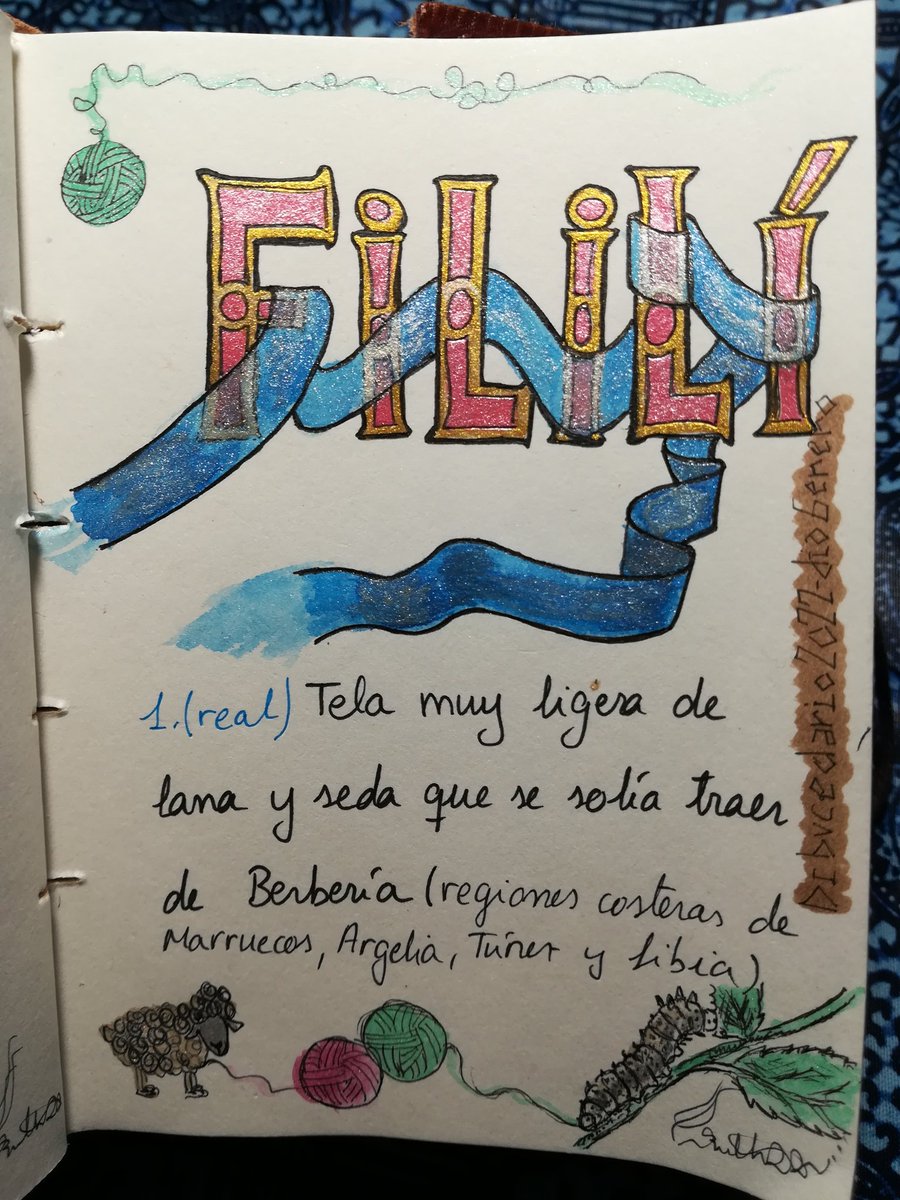 FiLiLÍ
1. (real) Tela muy ligera de
lana y seda que se solía traer
de Berbería (regiones costeras de
Marruecos, Argelia, Túnez y Libia)
Dibucedario2022-dia6enero